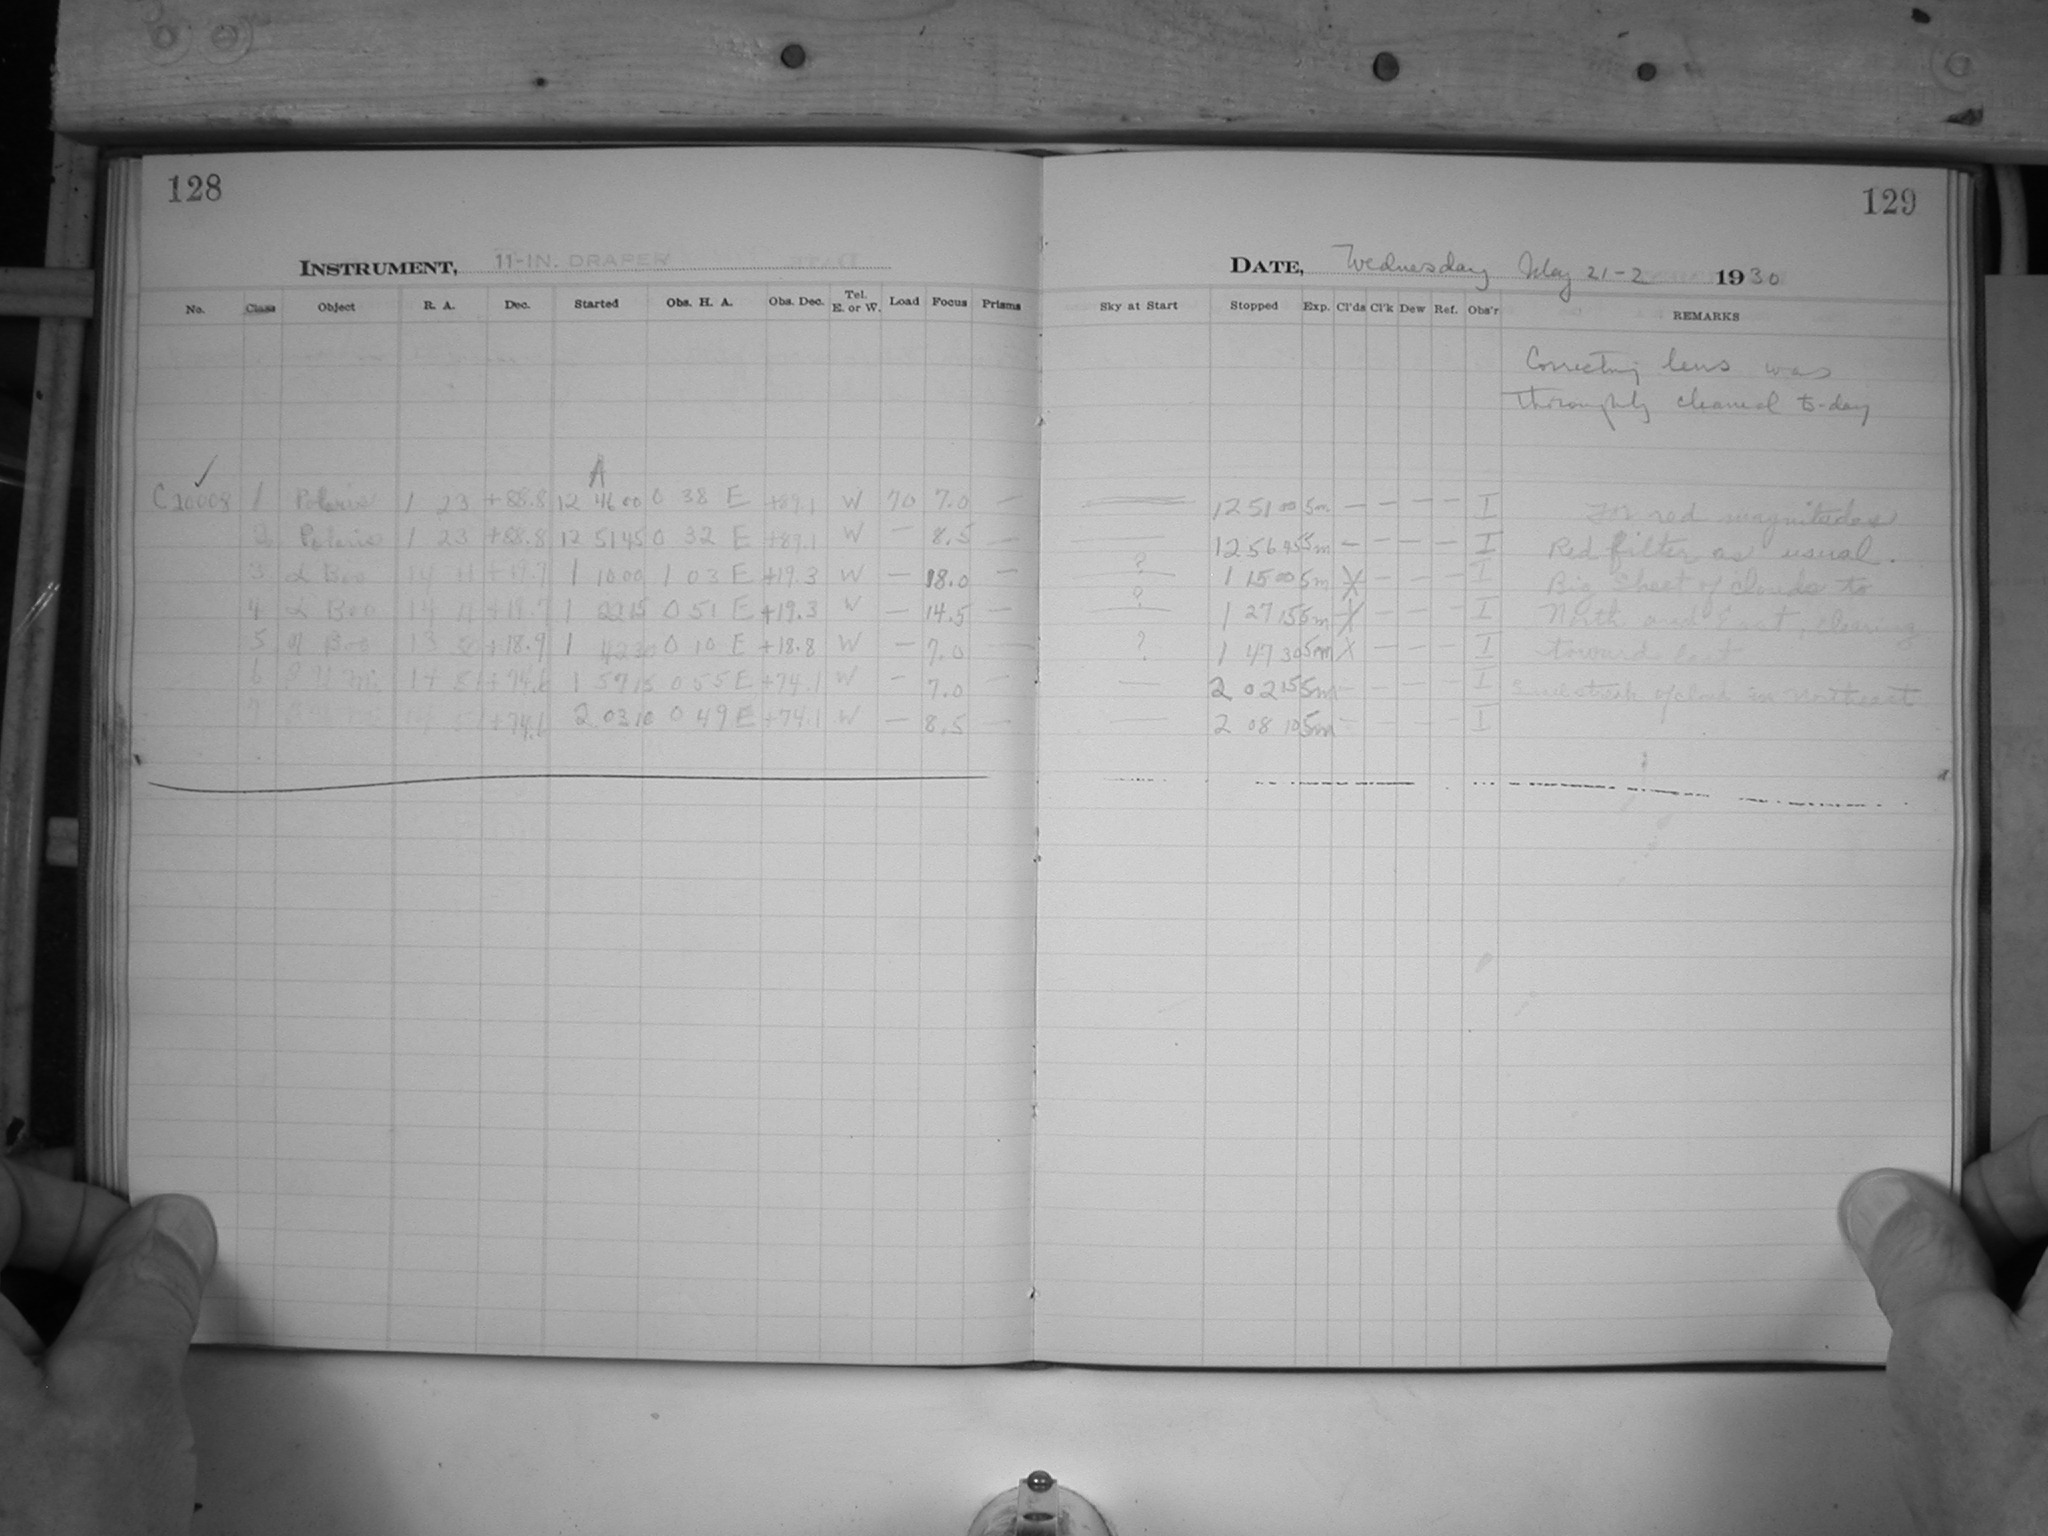 128
129
INSTRUMENT, 11-IN. DRAPER
DATE, Wednesday May 21-2 1930
No. Class Object R. A. Dec. Started Obs. H. A. Obs. Dec. Tel. E. or W. Load Focus Prisms Sky at Start Stopped Exp. Cl'ds Cl'k Dew Ref. Obs'r REMARKS
Correcting lens was
thoroughly cleaned to-day
A
✓
C20008 1 Polaris 1 23 +88.8 12 46 00 0 38 E +89.1 W 70 7.0 — — 12 51 00 5m — — — I For red magnitudes
2 Polaris 1 23 +88.8 12 51 45 0 32 E +89.1 W — 8.5 — — 12 56 45 5m — — — I Red filter as usual.
3 α Boo 14 11 +19.7 1 10 00 1 03 E +19.3 W — 18.0 — ? 1 15 00 5m X — — I Big sheet of clouds to
4 α Boo 14 11 +19.7 1 22 15 0 51 E +19.3 W — 14.5 — ? 1 27 15 5m X — — I North and East, clearing
5 η Boo 13 50 +18.9 1 42 30 0 10 E +18.8 W — 7.0 — ? 1 47 30 5m X — — I toward last
6 14 51 +74.6 1 57 15 0 55 E +74.1 W — 7.0 — — 2 02 15 5m — — — I in Northeast
7 +74.6 2 03 10 0 49 E +74.1 W — 8.5 — — 2 08 10 5m — — — I